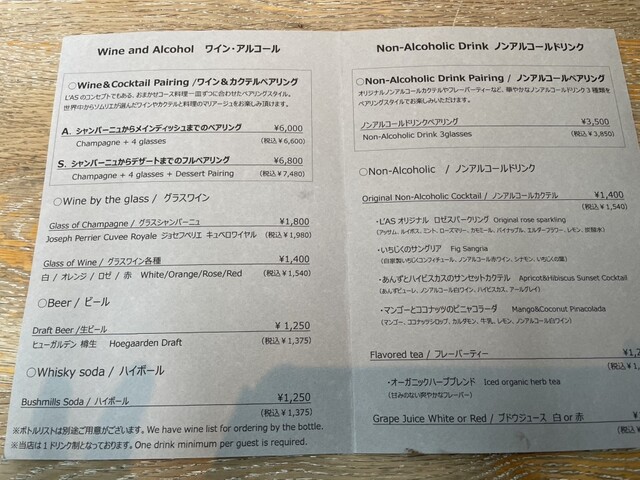 Wine and Alcohol ワイン・アルコール
○Wine&Cocktail Pairing /ワイン&カクテルペアリング
L'ASのコンセプトでもある、おまかせコース料理一皿ずつに合わせたペアリングスタイル。
世界中からソムリエが選んだワインやカクテルと料理のマリアージュをお楽しみ頂けます。
A. シャンパーニュからメインディッシュまでのペアリング ¥6,000
Champagne + 4 glasses (税込¥6,600)
S. シャンパーニュからデザートまでのフルペアリング ¥6,800
Champagne + 4 glasses + Dessert Pairing (税込¥7,480)
○Wine by the glass / グラスワイン
Glass of Champagne / グラスシャンパーニュ ¥1,800
Joseph Perrier Cuvee Royale ジョセフペリエ キュベロワイヤル (税込¥1,980)
Glass of Wine / グラスワイン各種 ¥1,400
白 / オレンジ / ロゼ / 赤 White/Orange/Rose/Red (税込¥1,540)
○Beer / ビール
Draft Beer /生ビール ¥ 1,250
ヒューガルデン 樽生 Hoegaarden Draft (税込¥1,375)
○Whisky soda / ハイボール
Bushmills Soda / ハイボール ¥1,250
(税込¥1,375)
※ボトルリストは別途ご用意がございます。We have wine list for ordering by the bottle.
※当店は1ドリンク制となっております。One drink minimum per guest is required.
Non-Alcoholic Drink ノンアルコールドリンク
○Non-Alcoholic Drink Pairing / ノンアルコールペアリング
オリジナルノンアルコールカクテルやフレーバーティーなど、華やかなノンアルコールドリンク3種類を
ペアリングスタイルでお楽しみいただけます。
ノンアルコールドリンクペアリング ¥3,500
Non-Alcoholic Drink 3glasses (税込¥3,850)
○Non-Alcoholic / ノンアルコールドリンク
Original Non-Alcoholic Cocktail / ノンアルコールカクテル ¥1,400
(税込¥1,540)
・L'AS オリジナル ロゼスパークリング Original rose sparkling
(アッサム、ルイボス、ミント、ローズマリー、カモミール、パイナップル、エルダーフラワー、レモン、炭酸水)
・いちじくのサングリア Fig Sangria
(自家製いちじくコンフィチュール、ノンアルコール赤ワイン、シナモン、いちじくの葉)
・あんずとハイビスカスのサンセットカクテル Apricot&Hibiscus Sunset Cocktail
(あんずピューレ、ノンアルコール白ワイン、ハイビスカス、アールグレイ)
・マンゴーとココナッツのピニャコラーダ Mango&Coconut Pinacolada
(マンゴー、ココナッツシロップ、カルダモン、牛乳、レモン、ノンアルコール白ワイン)
Flavored tea / フレーバーティー ¥1,2
(税込¥1,
・オーガニックハーブブレンド Iced organic herb tea
(甘みのない爽やかなフレーバー)
Grape Juice White or Red / ブドウジュース 白 or 赤 ¥
(税込¥